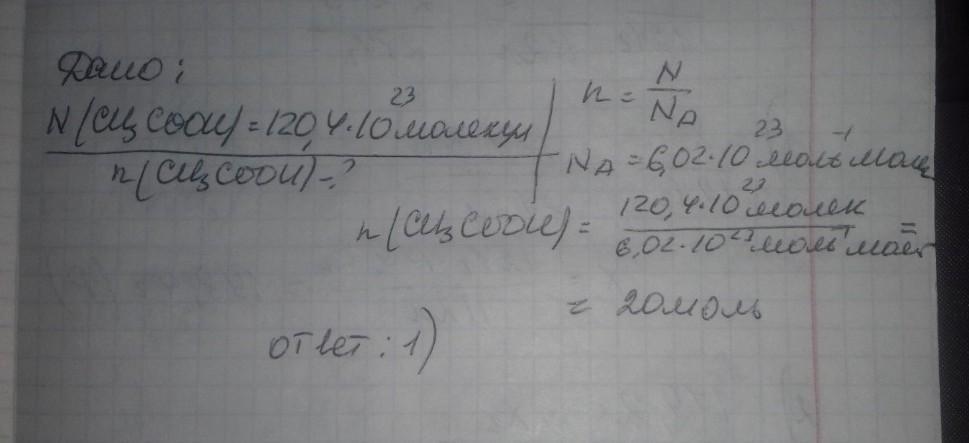 Дано:
N(CH₃COOH)=120,4·10²³ молекул
n(CH₃COOH)-?
n = N/N_A
N_A = 6,02·10²³ моль⁻¹ молек
n(CH₃COOH) = 120,4·10²³ молек / 6,02·10²³ моль⁻¹ молек =
= 20 моль
ответ: 1)